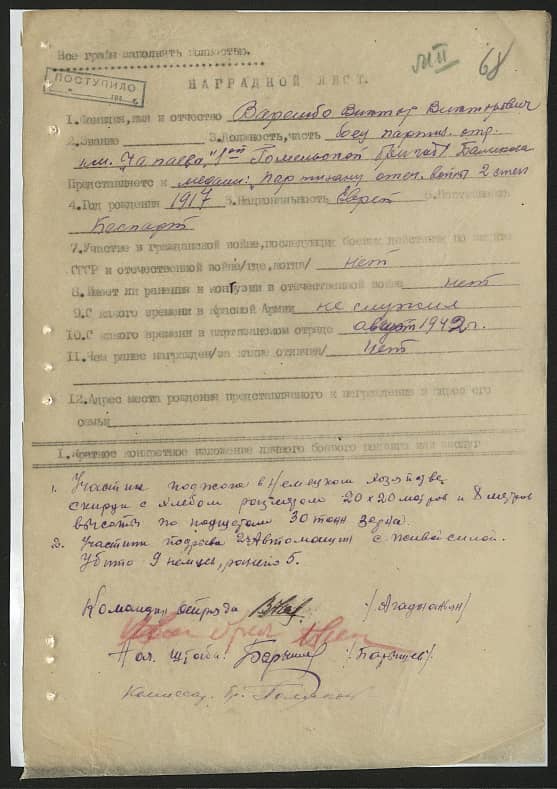 Все графы заполнять полностью.
М II 68
ПОСТУПИЛО
НАГРАДНОЙ ЛИСТ.
1. Фамилия, имя и отчество Варембо Виктор Викторович
2. Звание 3. Должность, часть боец партиз. отр.
им. Чапаева, Гомельской бригады
Представляется к медали: партизану отеч. войны 2 степ
4. Год рождения 1917 5. Национальность Еврей 6. Партийность
Беспарт
7. Участие в гражданской войне, последующих боевых действиях по защите
СССР и отечественной войне/где, когда/ нет
8. Имеет ли ранения и контузии в отечественной войне нет
9. С какого времени в Красной Армии не служил
10. С какого времени в партизанском отряде август 1942 г.
11. Чем ранее награжден/за какие отличия/ нет
12. Адрес места рождения представляемого к награждению и адрес его
семьи
1. Краткое конкретное изложение личного боевого подвига или заслуг
1. Участник поджога в Немецком хозяйстве
скирды с хлебом размером 20 х 20 метров и 8 метров
высоты по подщетам 30 тонн зерна.
2. Участник подрыва 2х Автомашин с живой силой.
Убито 9 немцев, ранено 5.
Командир отряда /Агаджанян/
Нач. штаба
Комиссар